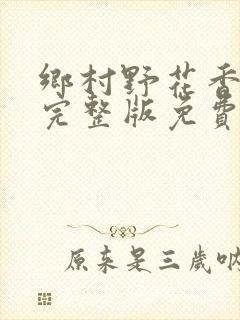 鄉村野花香
完整版免費
原来是三歲吶